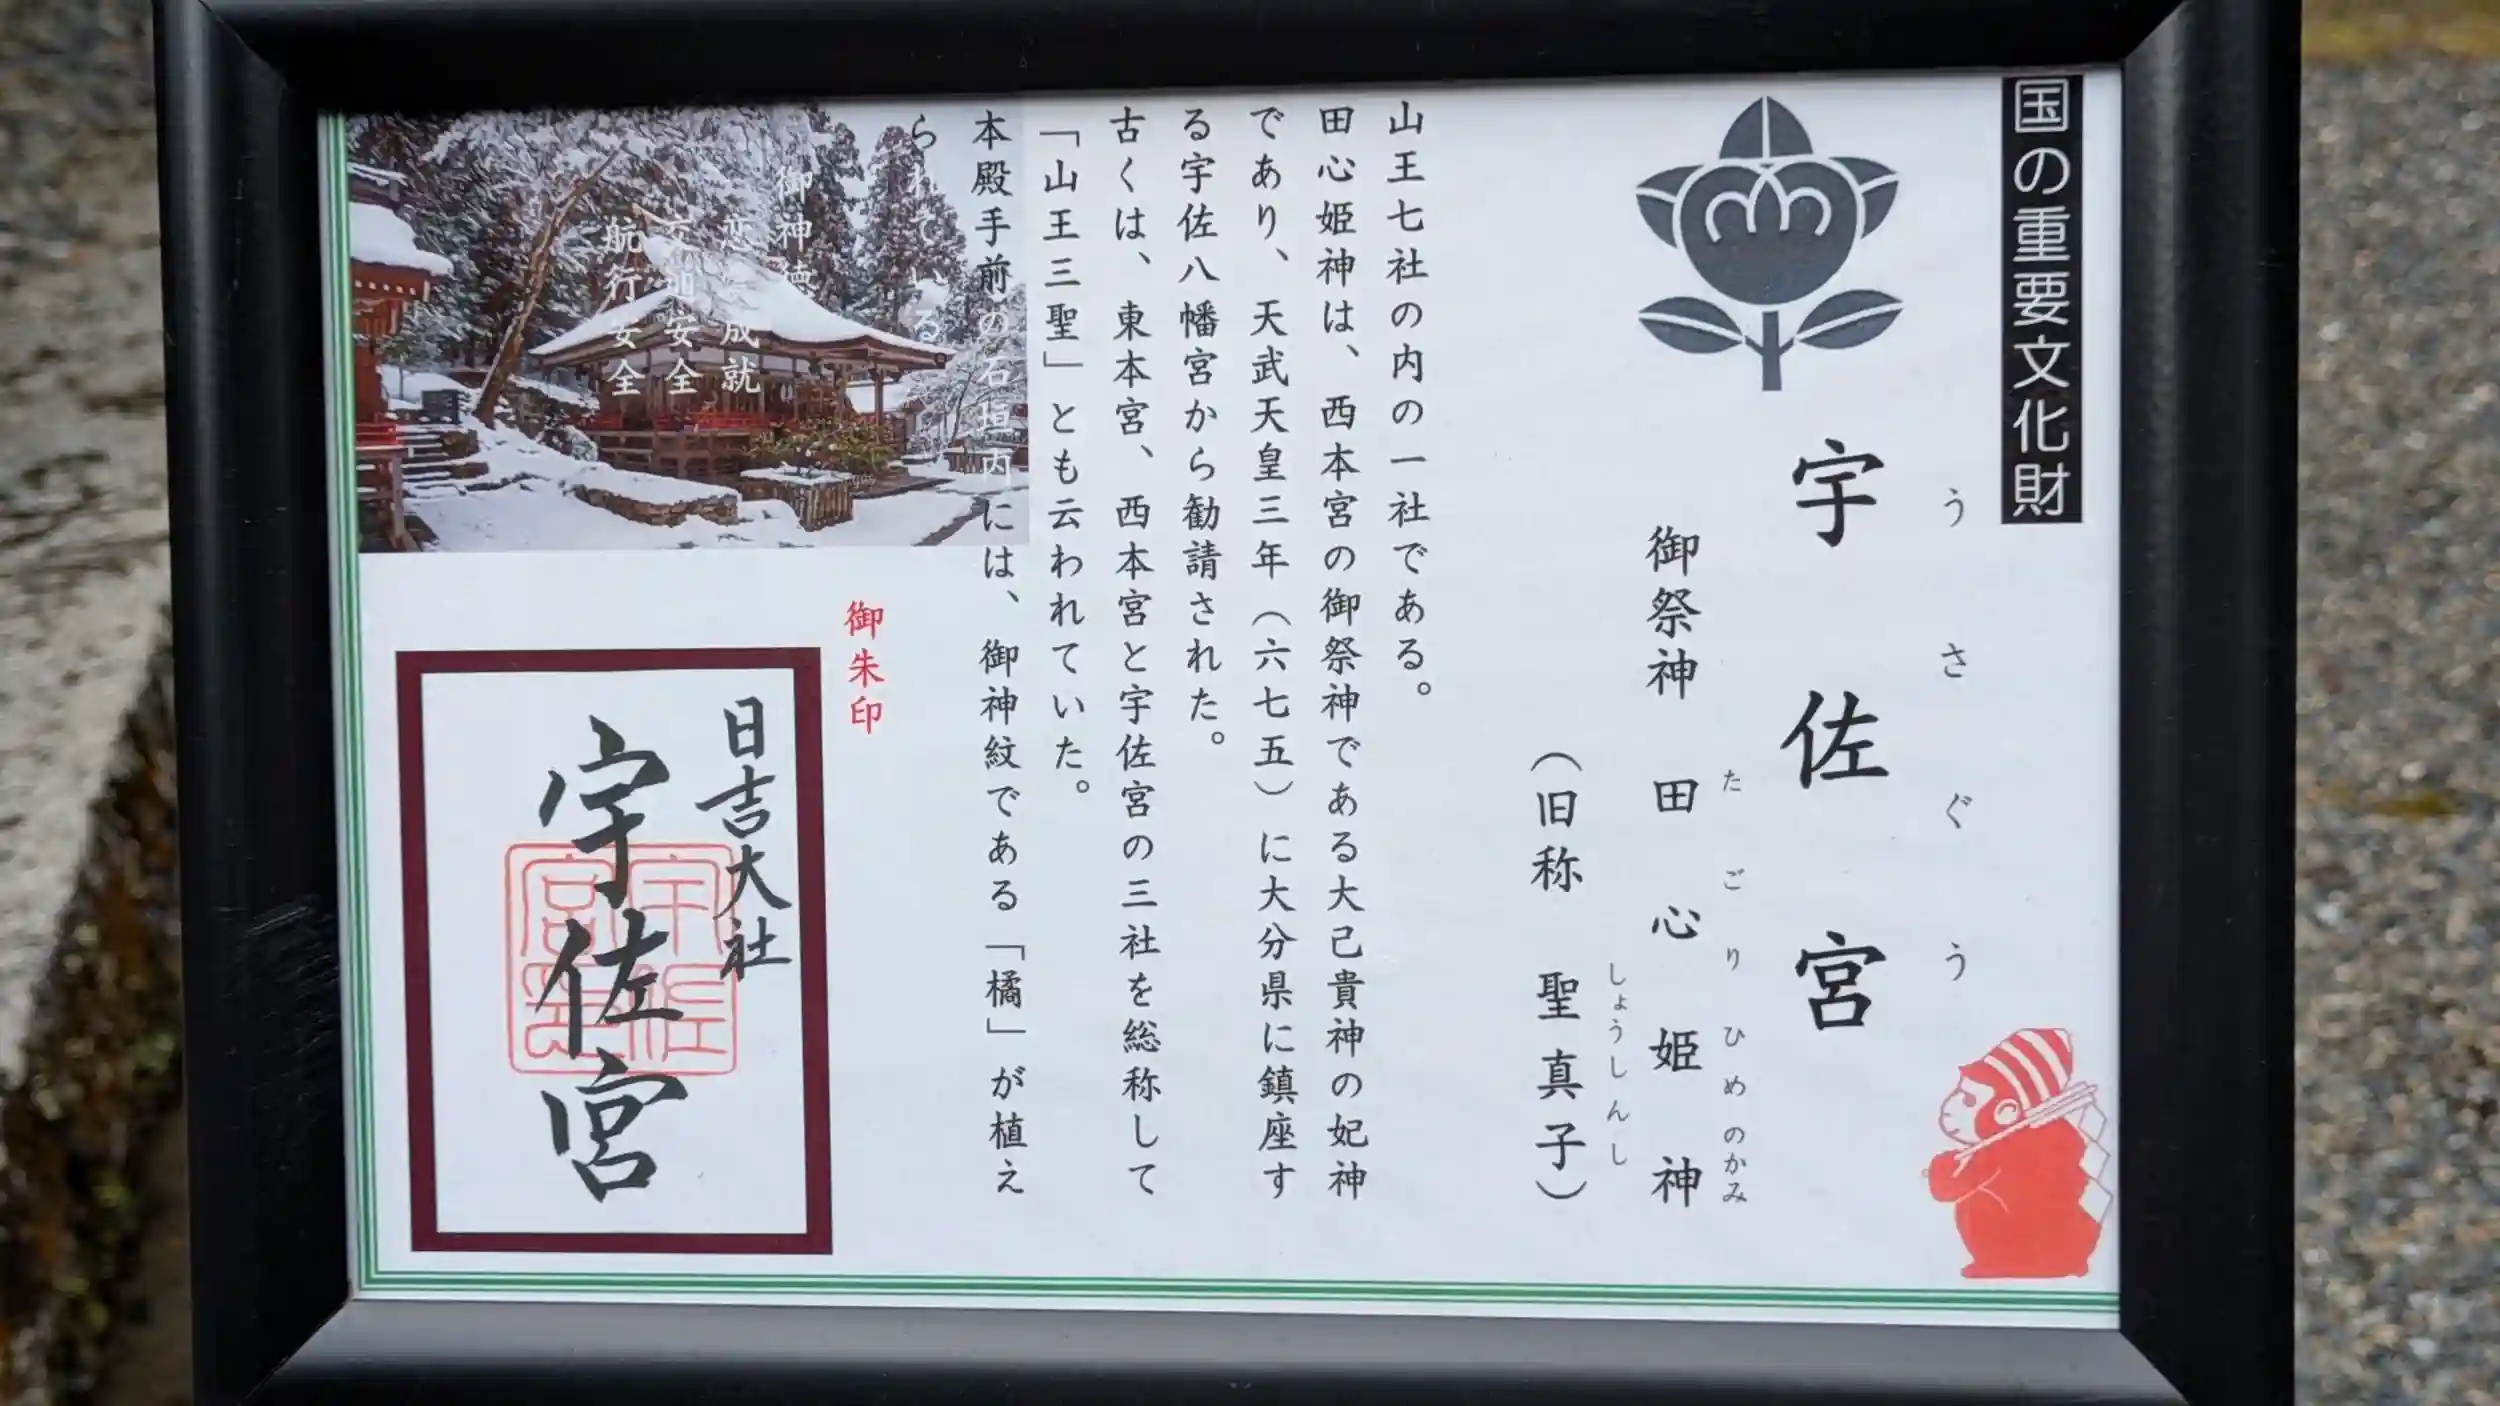 国の重要文化財
うさぐう
宇佐宮
御祭神 田心姫神
たごりひめのかみ
(旧称 聖真子)
しょうしんし
山王七社の内の一社である。
田心姫神は、西本宮の御祭神である大己貴神の妃神
であり、天武天皇三年(六七五)に大分県に鎮座す
る宇佐八幡宮から勧請された。
古くは、東本宮、西本宮と宇佐宮の三社を総称して
「山王三聖」とも云われていた。
本殿手前の石垣内には、御神紋である「橘」が植え
られている。
御神徳
恋愛成就
交通安全
航行安全
御朱印
日吉大社
宇佐宮